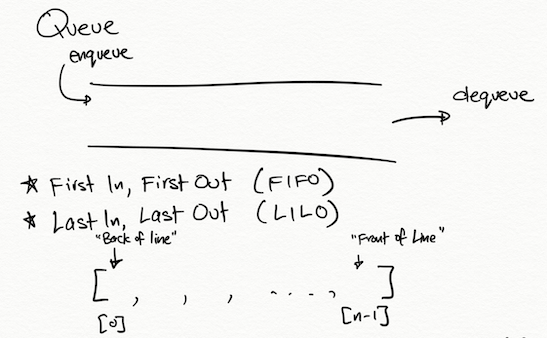 Queue
enqueue
dequeue
★ First In, First Out (FIFO)
★ Last In, Last Out (LILO)
"Back of line"
"Front of Line"
[ , , , ...., ]
[0]
[n-1]